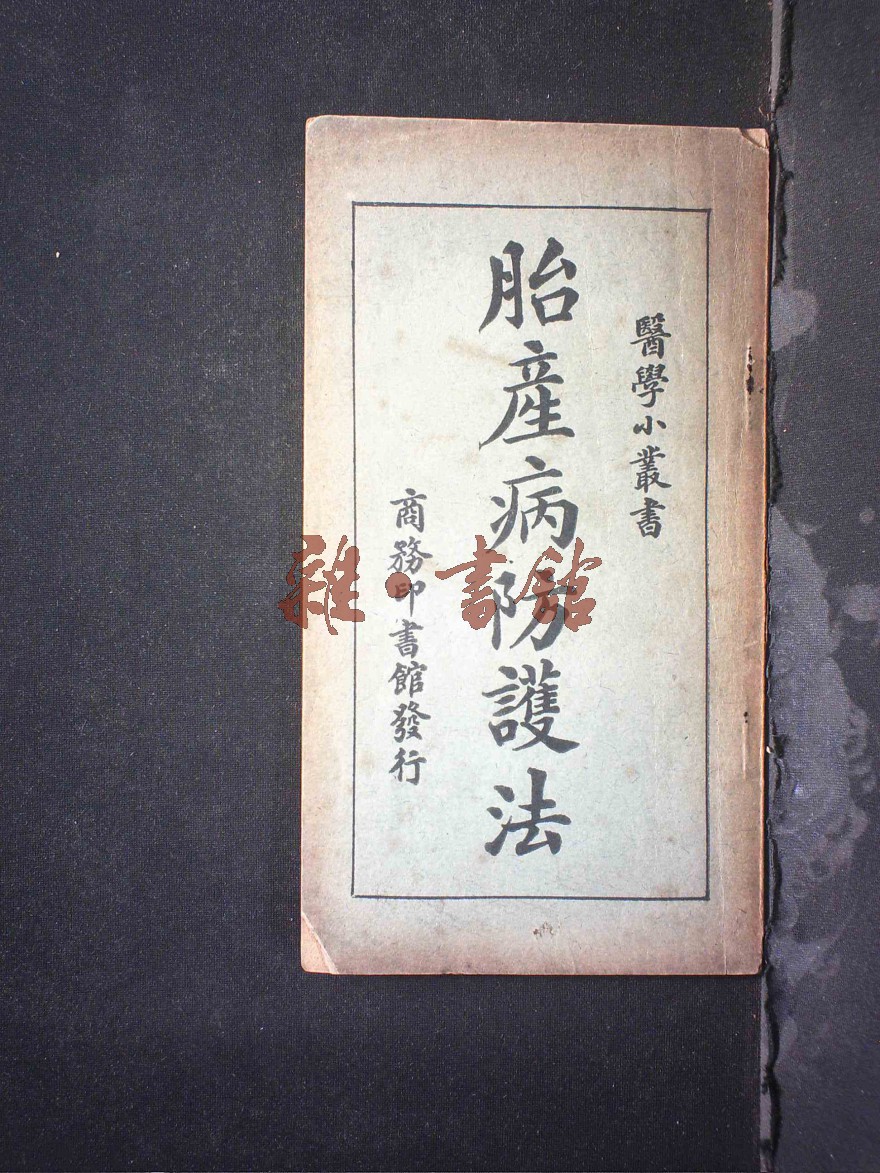 醫學小叢書
胎產病防護法
商務印書館發行
雜·書館